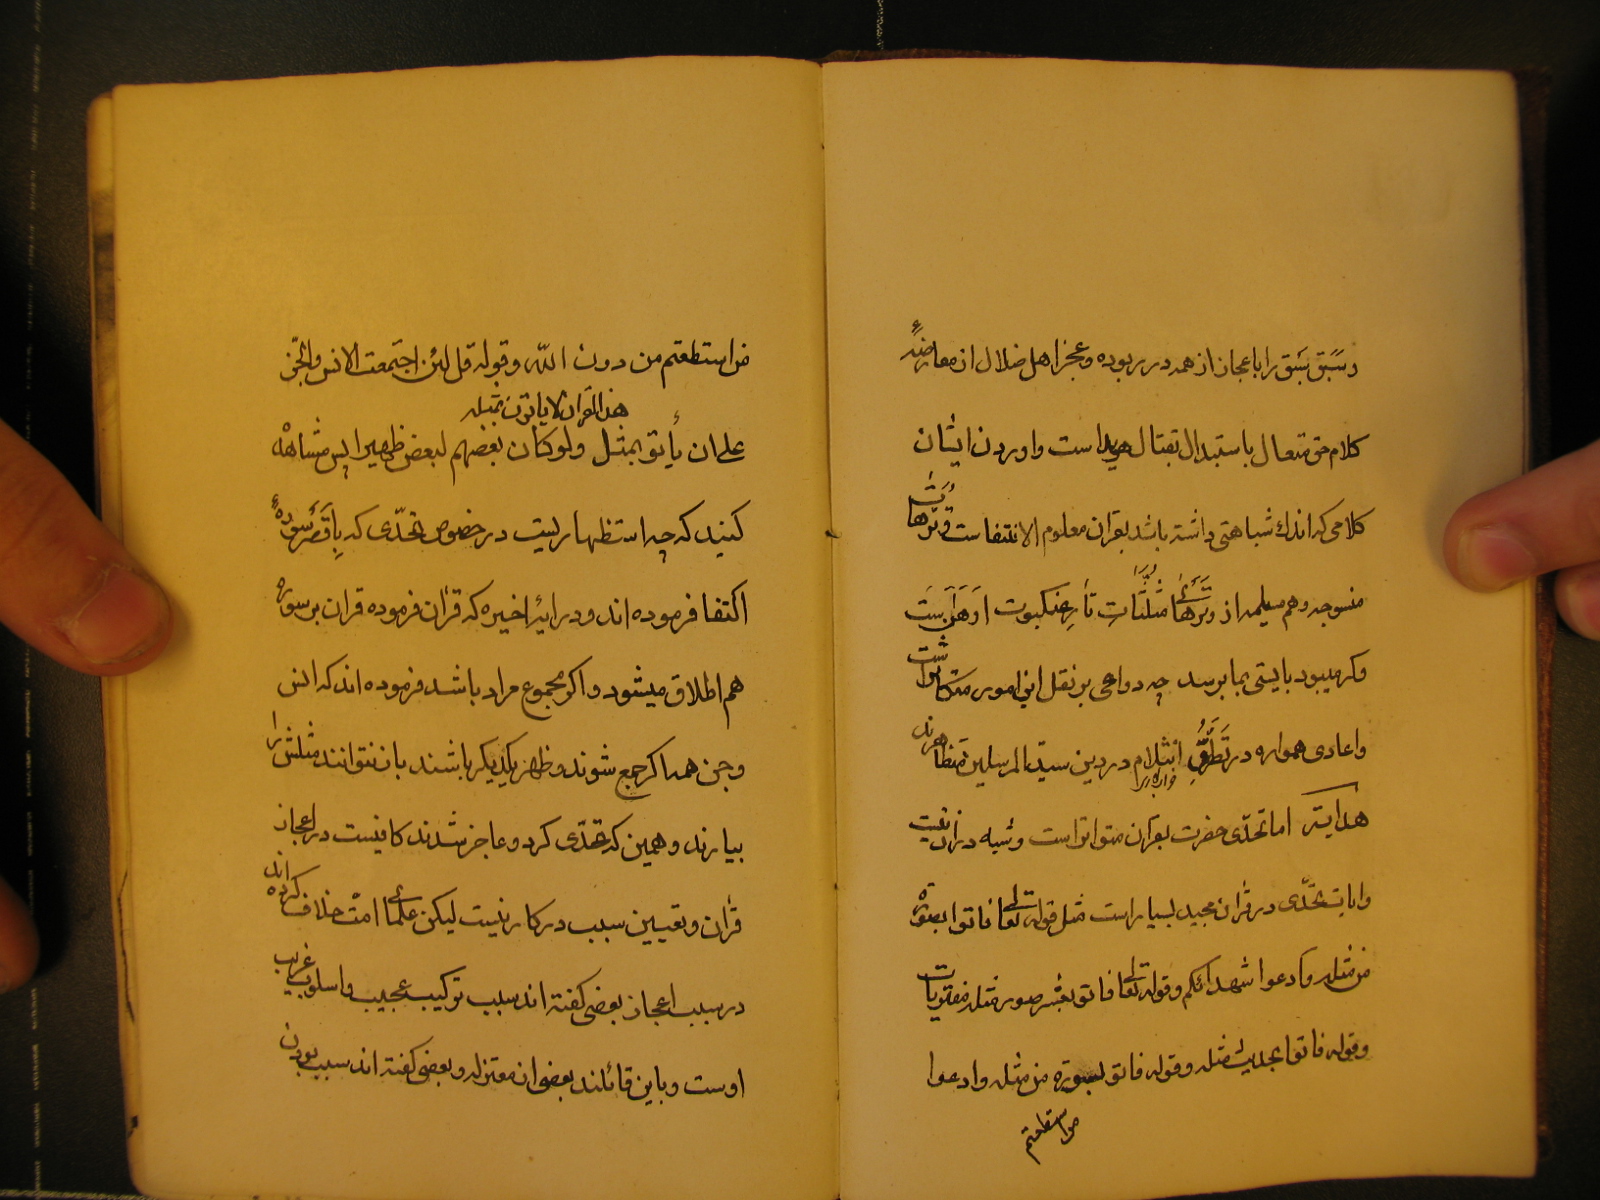 و سَبَق بسَبَق را با عجاز از همه در ربوده و عجز اهل ضلال از معارضهٔ
کلام حق متعال با ستبدال بقتال هویداست و اوردن ایشان
کلامی که اندک شباهتی داشته باشد بقران معلوم الانتفاست
منسوجه وهم مسیلمه از تار عنکبوت اَوهَن است
وکر میبود بایستی بما برسد چه دواعی بر نقل این امور متکاثر است
و اعادی همواره در تَطَرُّقِ انثلام در دین سیّد المرسلین متظاهرند
هدایة اما تحدّی حضرت بقران متواتر است و شبه در ان نیست
و ایات تحدّی در قران مجید بسیار است مثل قوله تعالی فاتوا بسورة
من مثله وادعوا شهدائکم وقوله تعالی فاتو بعشر صور مثله مفتریات
وقوله فاتوا بحدیث مثله وقوله فاتو بسورة من مثله وادعوا
من استطعتم
من استطعتم من دون الله وقوله قل لئن اجتمعت الانس والجن
هذا القرآن لا یاتون بمثله
علی ان یأتو بمثل ولو کان بعضهم لبعض ظهیرا پس مشاهده
کنید که چه استظهاریست در خصوص تحدّی که باَقصَر سورهٔ
اکتفا فرموده اند و در ایهٔ اخیره که قران فرموده قران بر سوره
هم اطلاق میشود و اکر مجموع مراد باشد فرموده اند که انس
و جن همه اکر جمع شوند و ظهر یکدیکر باشند بانتوانند مثلش را
بیارند و همین که تحدّی کرد و عاجز شدند کافیست در اعجاز
قران و تعیین سبب در کار نیست لیکن علمای امت خلاف کرده اند
در سبب اعجاز بعضی کفته اند سبب ترکیب عجیب و اسلوب غریب
اوست و باین قائلند بعضی از معتزله و بعضی کفته اند سبب بودن